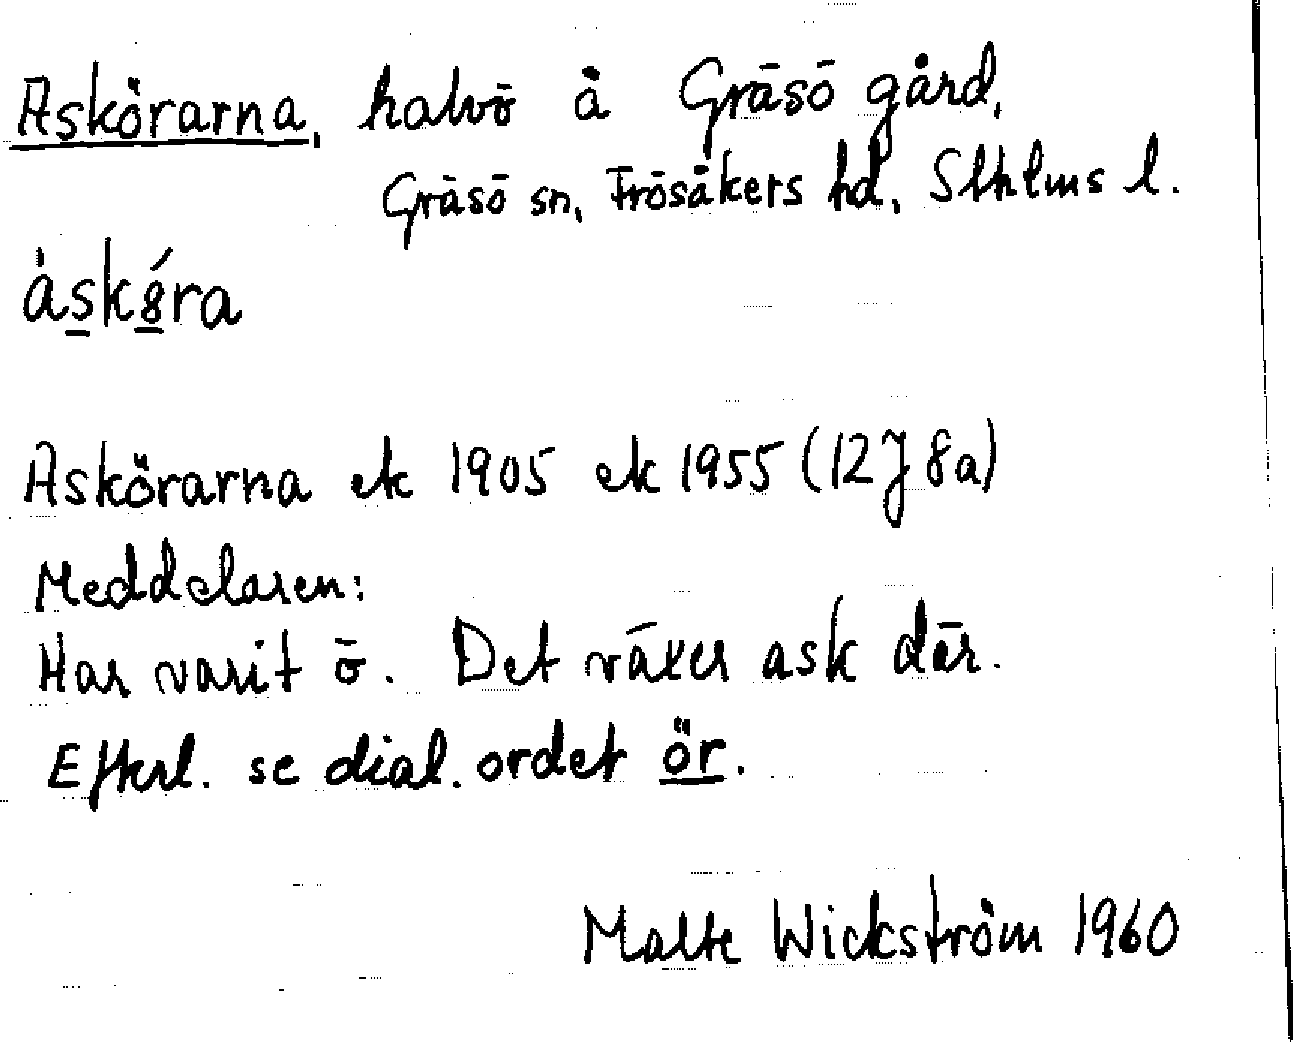 Askörarna, halvö å Gräsö gård,
Gräsö sn, Frösåkers hd, Sthlms l.
àskǿra
Askörarna ek 1905 ek 1955 (12J 8a)
Meddelaren:
Har varit ö. Det växer ask där.
Efterl. se dial. ordet ör.
Malte Wickström 1960